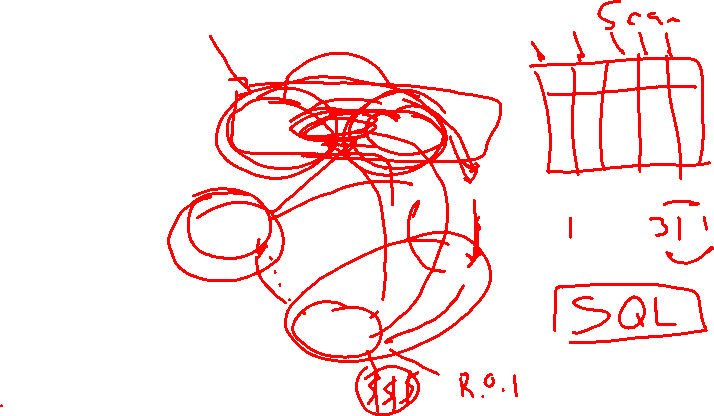 Scan
1 3 1 1
SQL
$$$
R.O.I